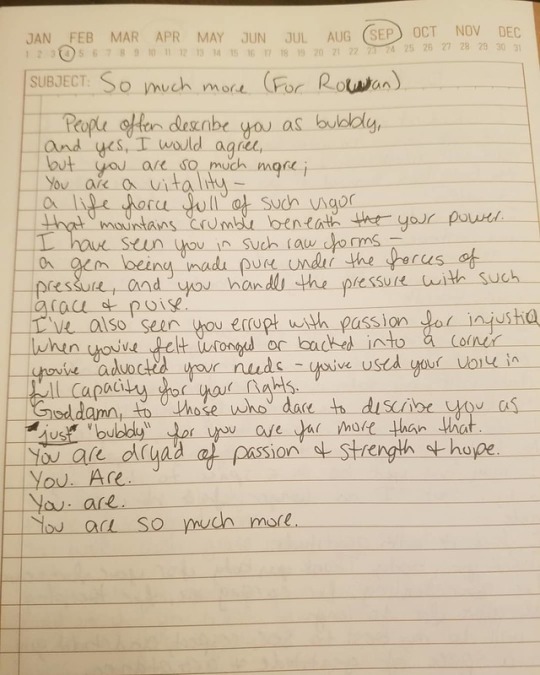 JAN FEB MAR APR MAY JUN JUL AUG SEP OCT NOV DEC
1 2 3 4 5 6 7 8 9 10 11 12 13 14 15 16 17 18 19 20 21 22 23 24 25 26 27 28 29 30 31
SUBJECT: So much more (For Rowan)
People often describe you as bubbly,
and yes, I would agree,
but you are so much more;
You are a vitality –
a life force full of such vigor
that mountains crumble beneath the your power.
I have seen you in such raw forms –
a gem being made pure under the forces of
pressure, and you handle the pressure with such
grace & poise.
I've also seen you errupt with passion for injustice
When you've felt wronged or backed into a corner
you've advocted your needs – you've used your voice in
full capacity for your rights.
Goddamn, to those who dare to describe you as
"just "bubbly" for you are far more than that.
You are dryad of passion & strength & hope.
You. Are.
You. are.
You are so much more.